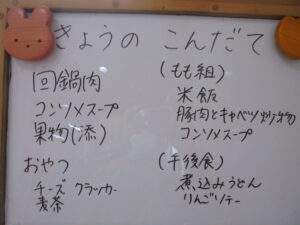 きょうの こんだて
回鍋肉
コンソメスープ
果物(添)
おやつ
チーズ クラッカー
麦茶
(もも組)
米飯
豚肉とキャベツ炒め物
コンソメスープ
(午後食)
煮込みうどん
りんごソテー